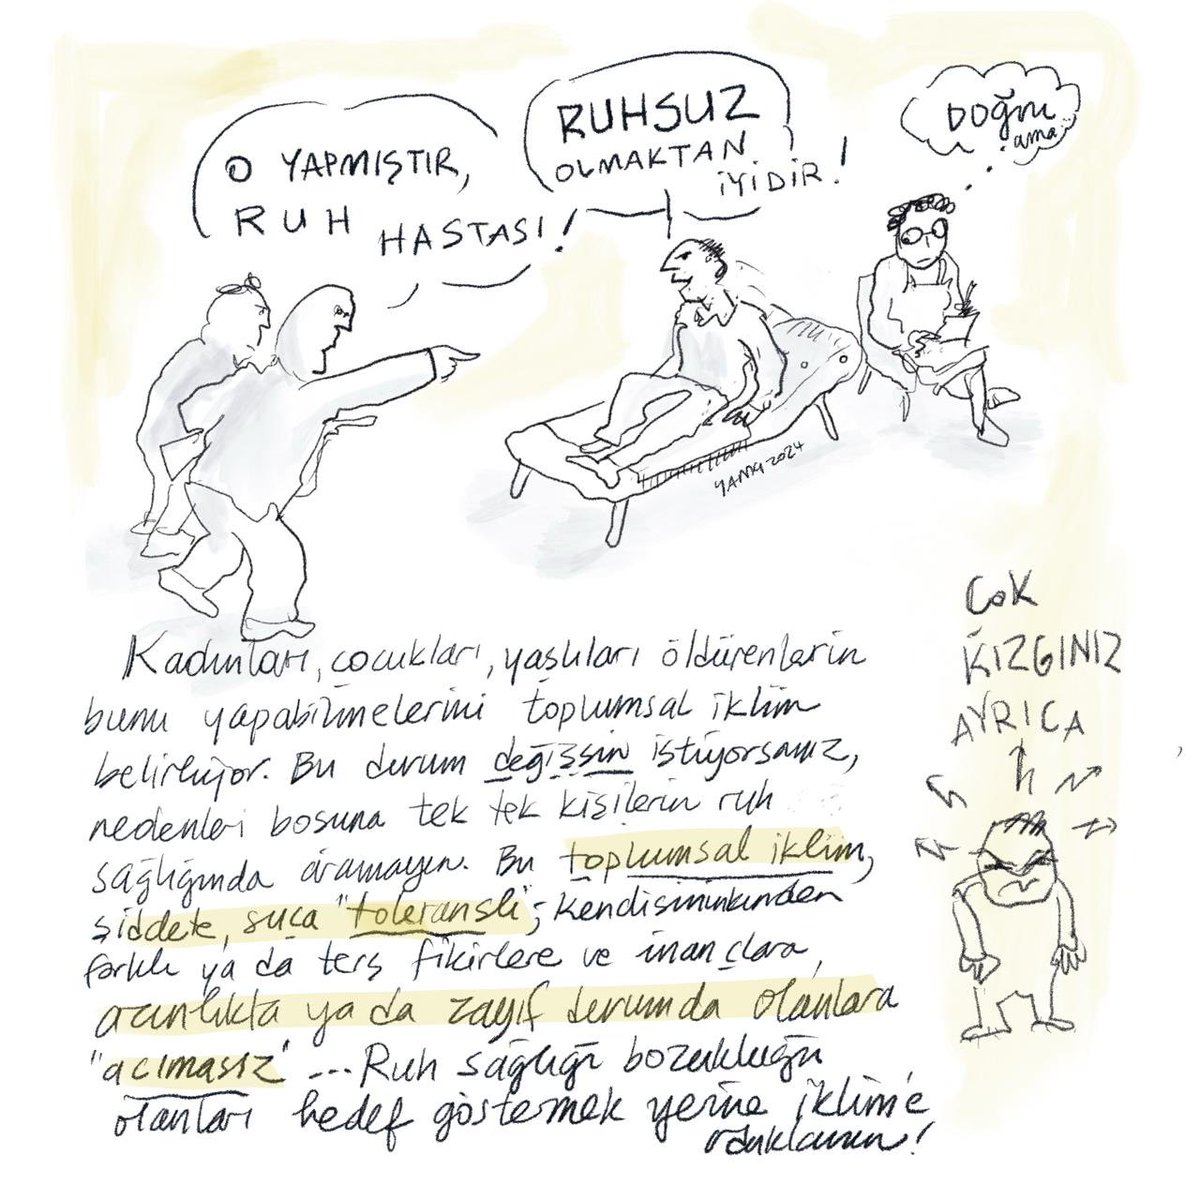 O YAPMIŞTIR,
RUH HASTASI!
RUHSUZ
OLMAKTAN
İYİDİR!
Doğru
ama..
YANKI-2024
Kadınları, çocukları, yaşlıları öldürenlerin
bunu yapabilmelerini toplumsal iklim
belirliyor. Bu durum değişsin istiyorsanız,
nedenleri boşuna tek tek kişilerin ruh
sağlığında aramayın. Bu toplumsal iklim,
şiddete, suça "toleranslı"; kendisininkinden
farklı ya da ters fikirlere ve inançlara,
azınlıkta ya da zayıf durumda olanlara
"acımasız" ...Ruh sağlığı bozukluğu
olanları hedef göstermek yerine iklim'e
odaklanın!
ÇoK
KIZGINIZ
AYRICA